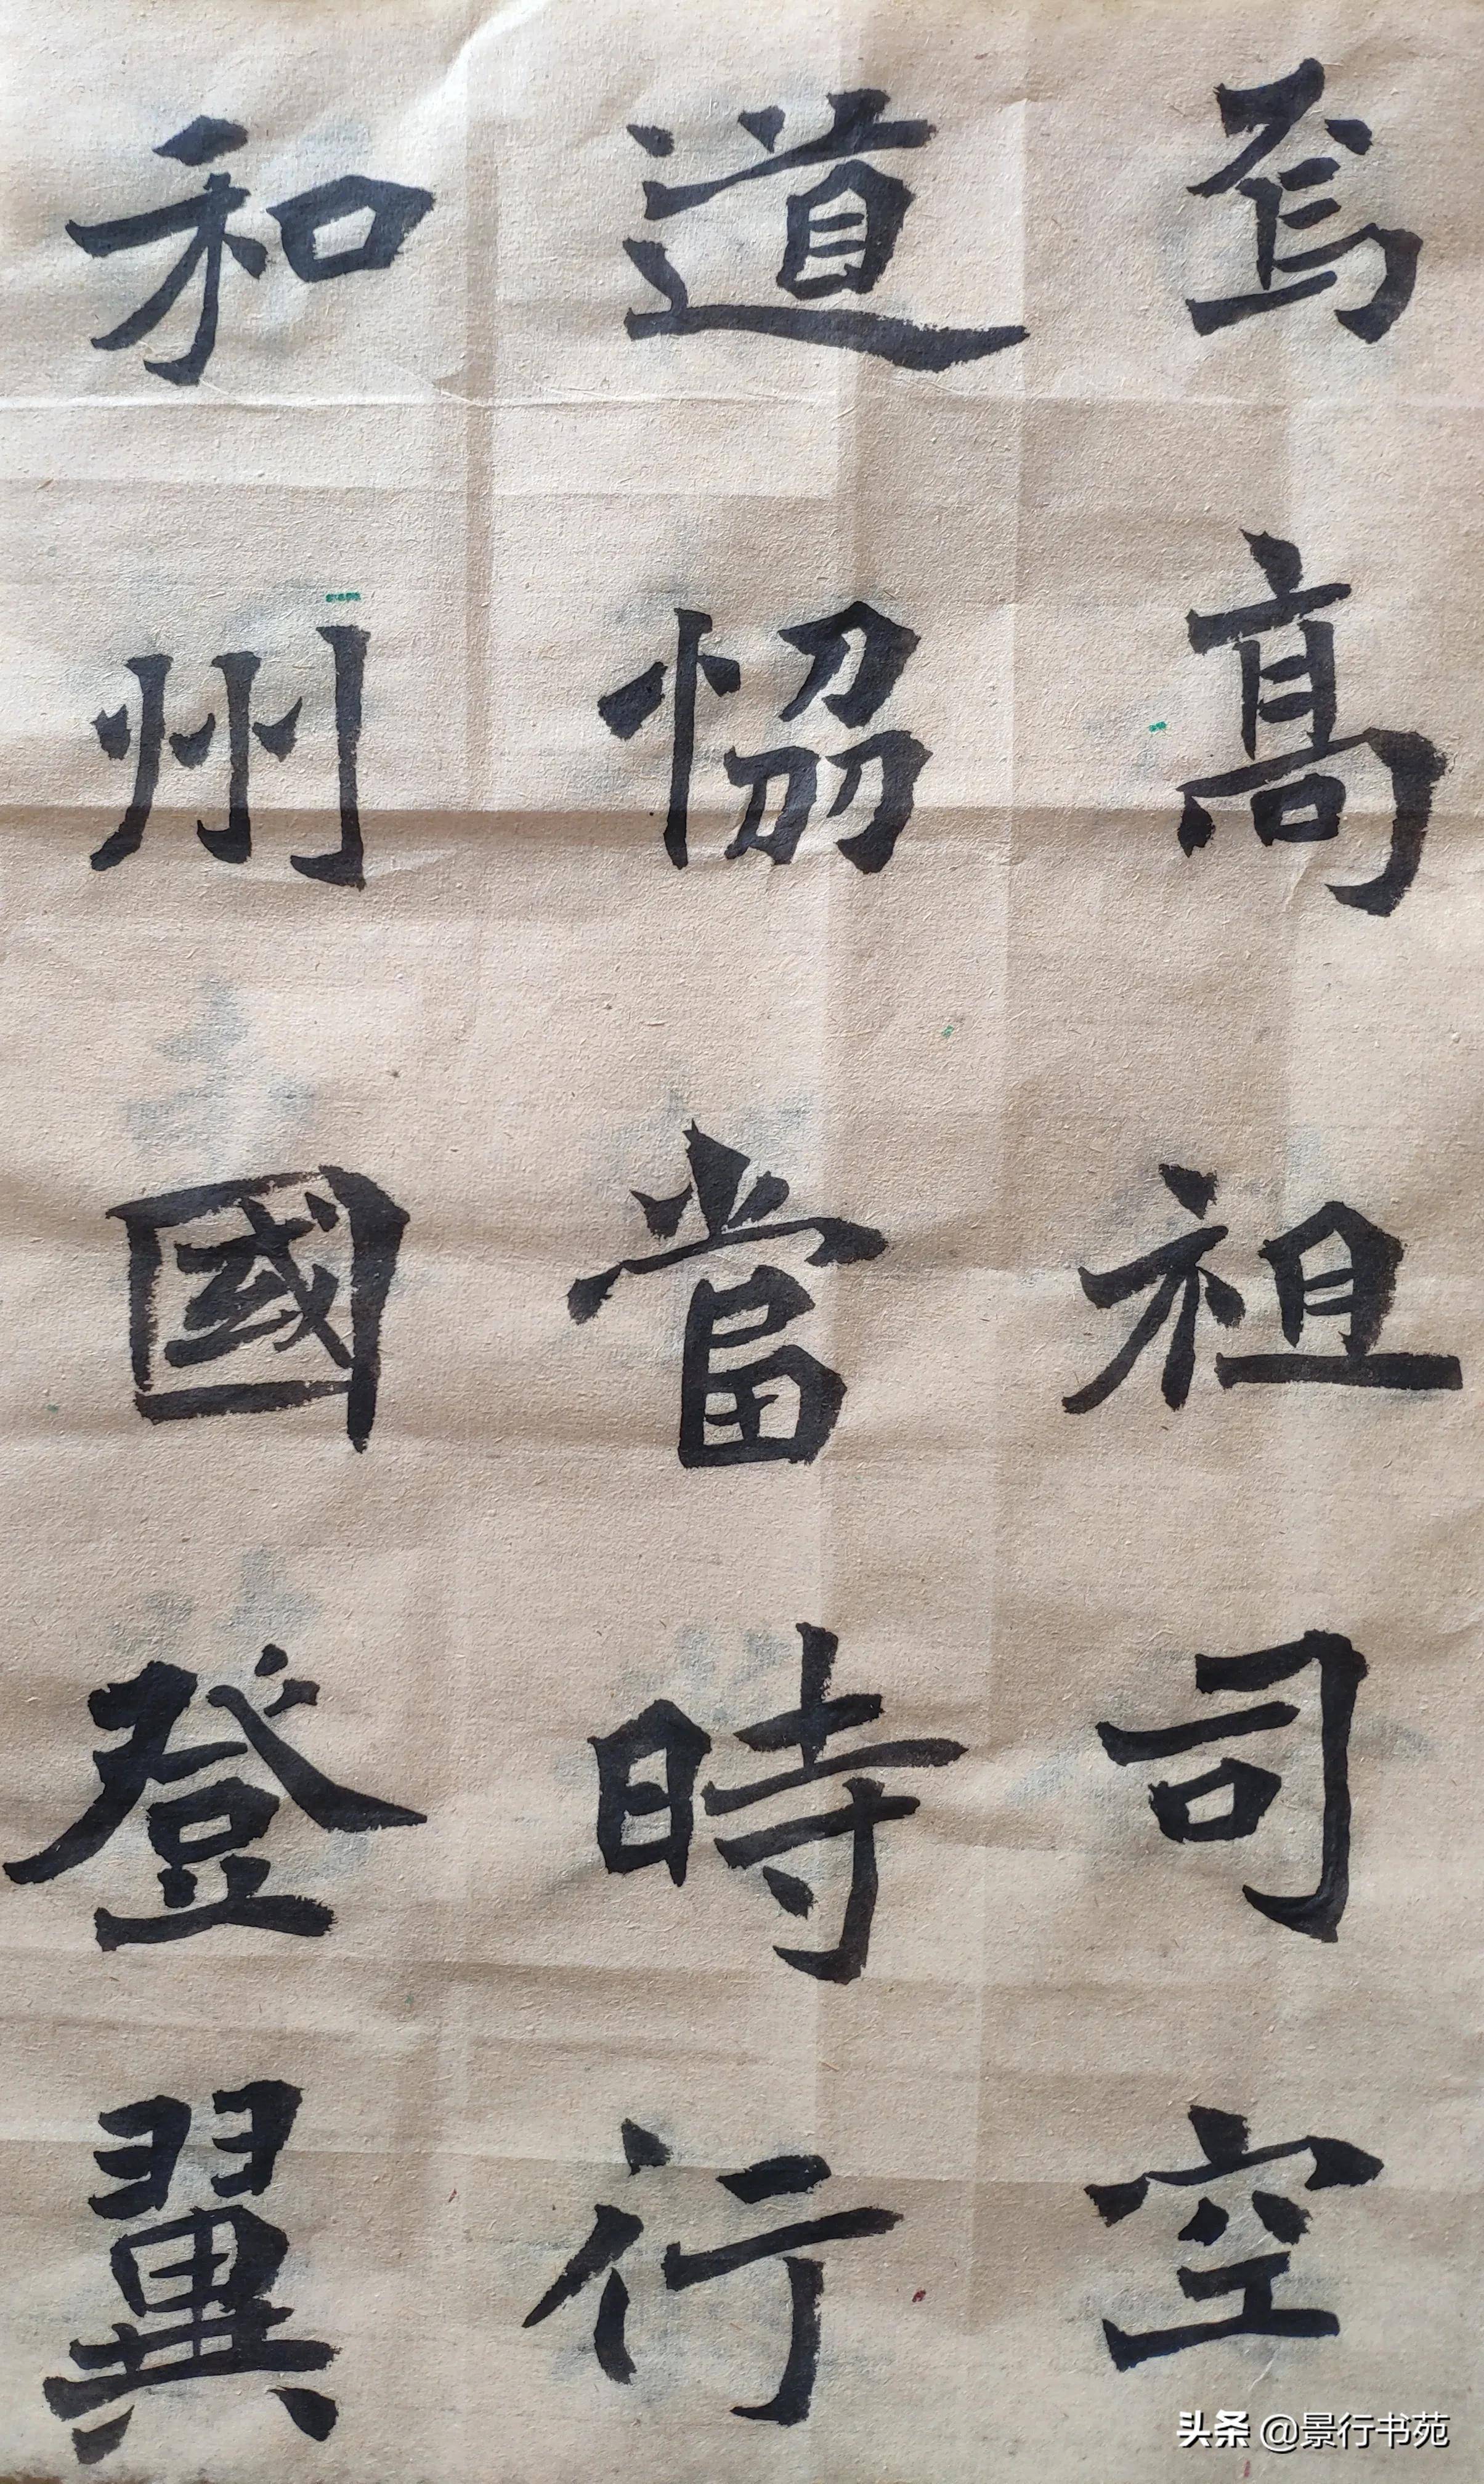 焉高祖司空
道協當時行
和州國登翼
头条 @景行书苑